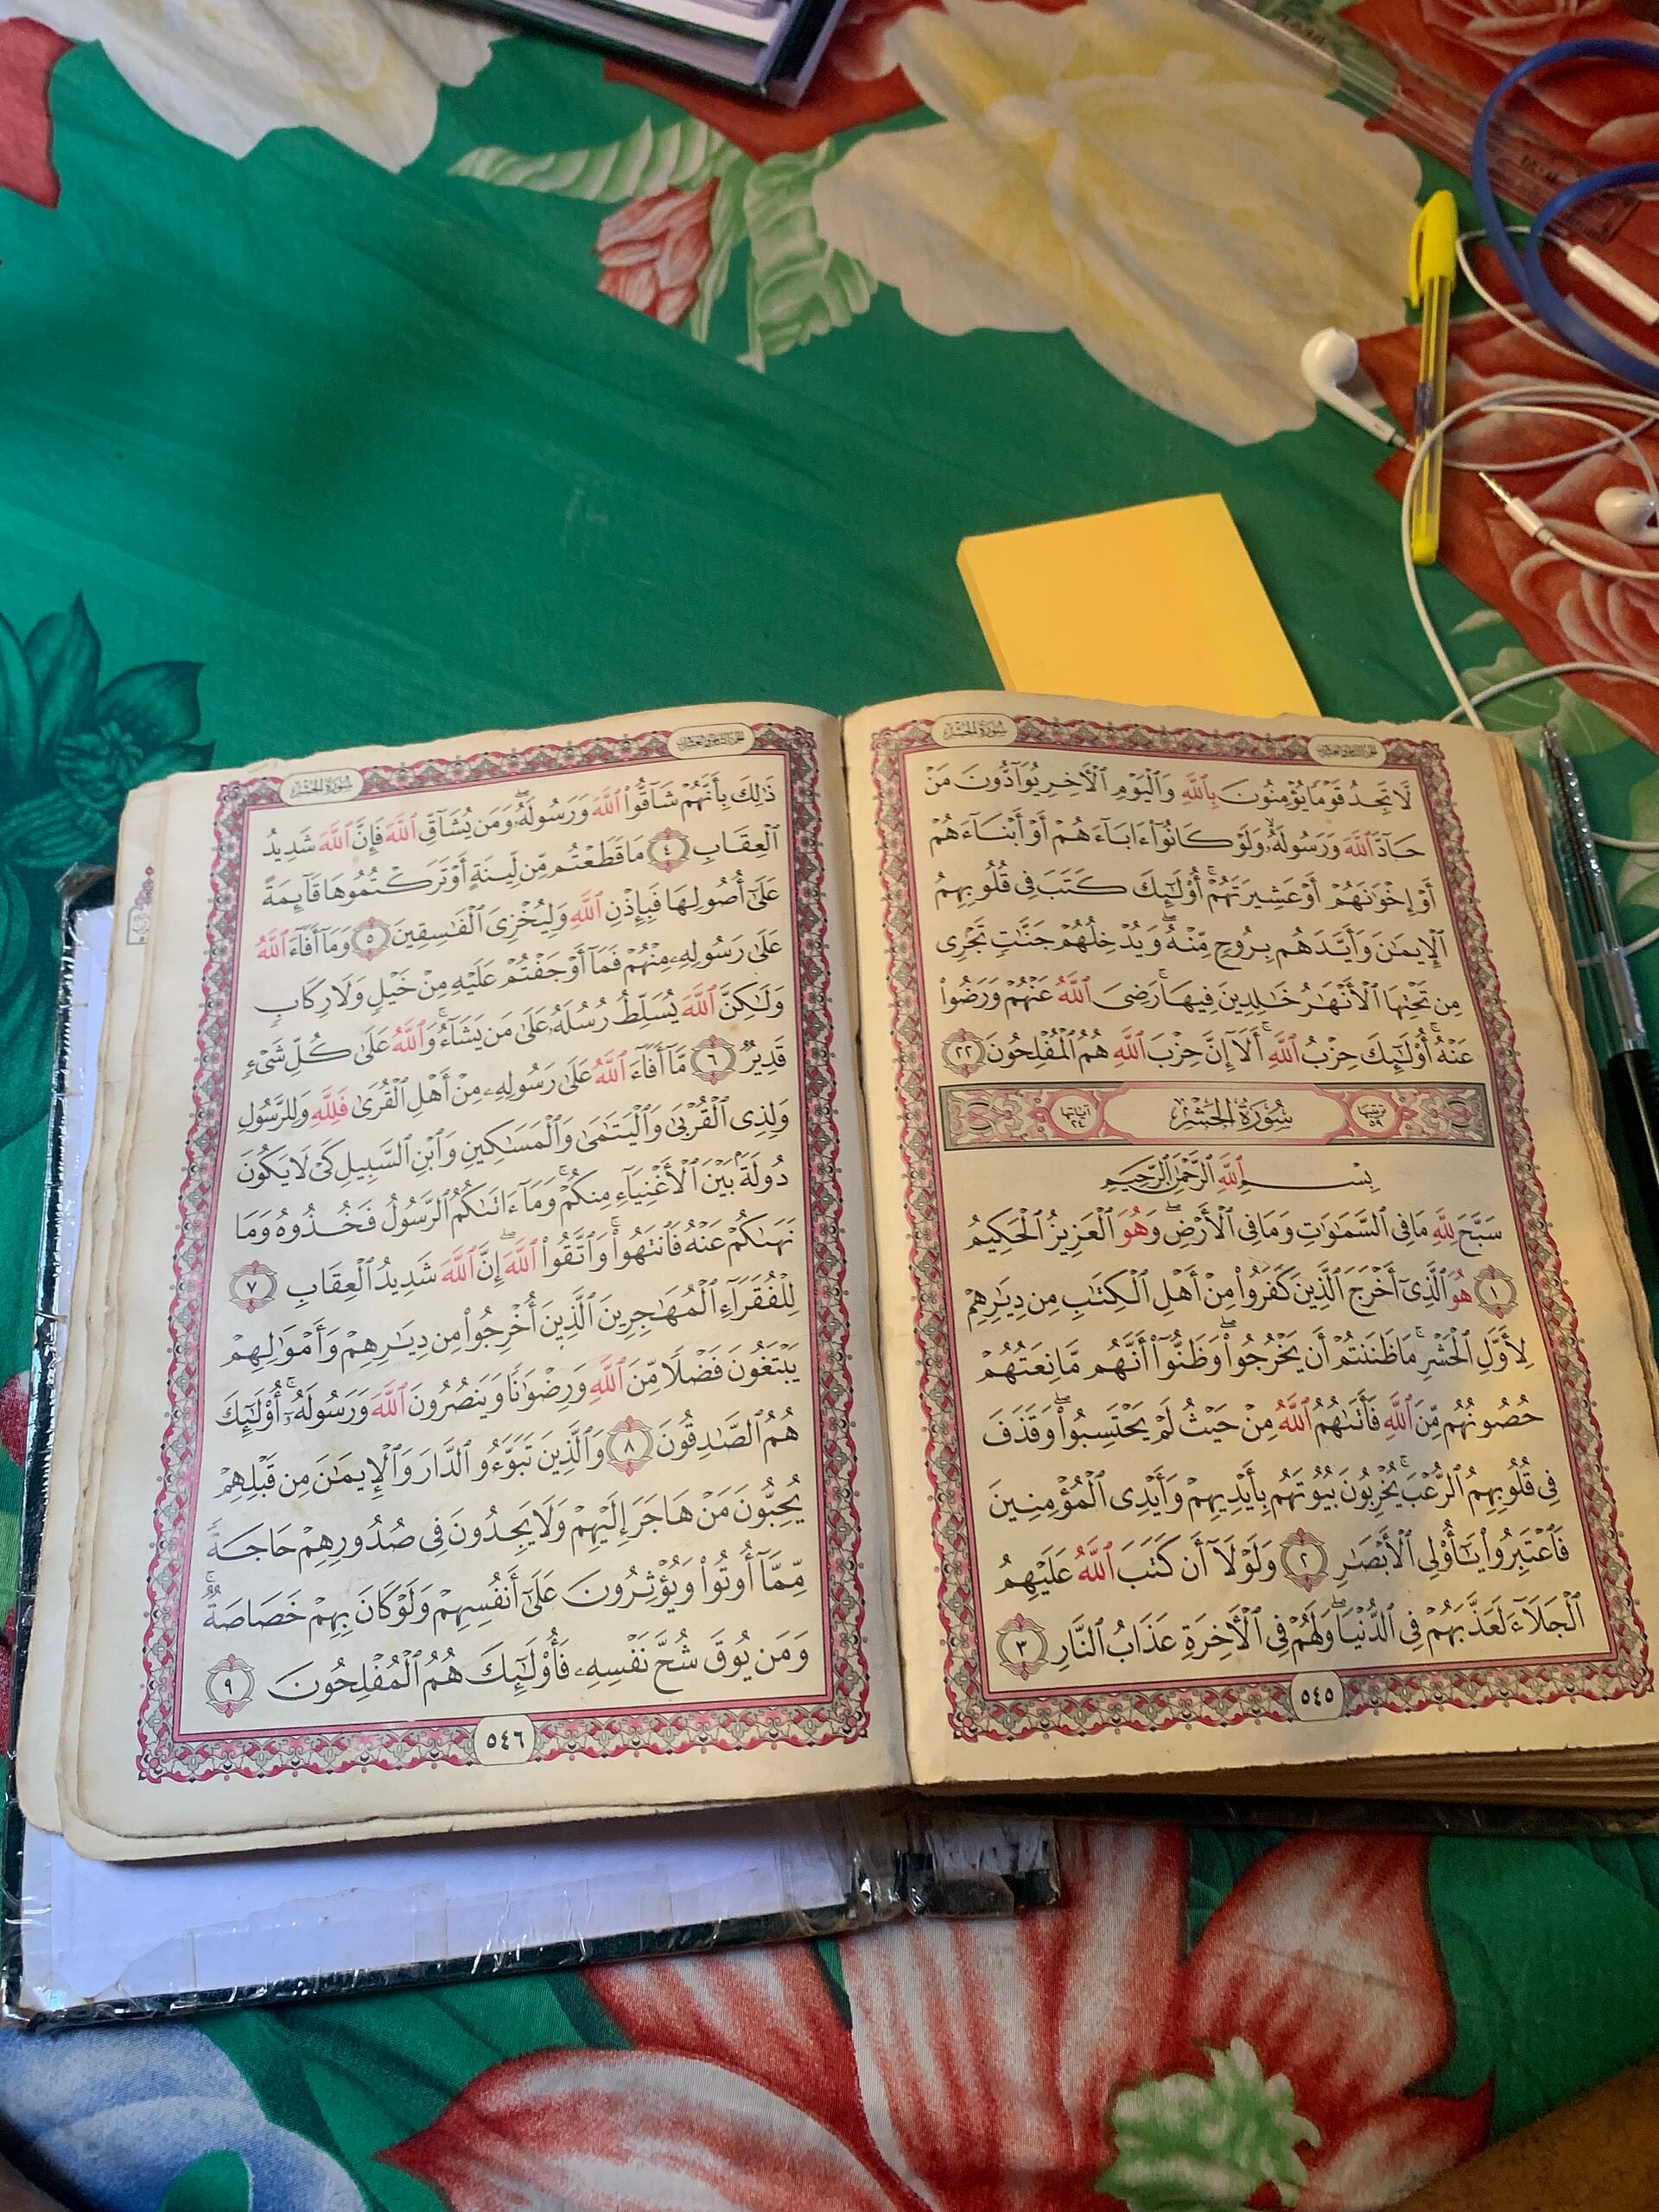 سُورَةُ الحَشْرِ
الجزء الثامن والعشرون
لَّا تَجِدُ قَوْمًا يُؤْمِنُونَ بِٱللَّهِ وَٱلْيَوْمِ ٱلْأَخِرِ يُوَآدُّونَ مَنْ
حَآدَّ ٱللَّهَ وَرَسُولَهُۥ وَلَوْ كَانُوٓا۟ ءَابَآءَهُمْ أَوْ أَبْنَآءَهُمْ
أَوْ إِخْوَٰنَهُمْ أَوْ عَشِيرَتَهُمْ ۚ أُو۟لَٰٓئِكَ كَتَبَ فِى قُلُوبِهِمُ
ٱلْإِيمَٰنَ وَأَيَّدَهُم بِرُوحٍ مِّنْهُ ۖ وَيُدْخِلُهُمْ جَنَّٰتٍ تَجْرِى
مِن تَحْتِهَا ٱلْأَنْهَٰرُ خَٰلِدِينَ فِيهَا ۚ رَضِىَ ٱللَّهُ عَنْهُمْ وَرَضُوا۟
عَنْهُ ۚ أُو۟لَٰٓئِكَ حِزْبُ ٱللَّهِ ۚ أَلَآ إِنَّ حِزْبَ ٱللَّهِ هُمُ ٱلْمُفْلِحُونَ ٢٢
ترتيبها ٥٩ سُورَةُ الحَشْرِ آياتها ٢٤
بِسْمِ ٱللَّهِ ٱلرَّحْمَٰنِ ٱلرَّحِيمِ
سَبَّحَ لِلَّهِ مَا فِى ٱلسَّمَٰوَٰتِ وَمَا فِى ٱلْأَرْضِ ۖ وَهُوَ ٱلْعَزِيزُ ٱلْحَكِيمُ
١ هُوَ ٱلَّذِىٓ أَخْرَجَ ٱلَّذِينَ كَفَرُوا۟ مِنْ أَهْلِ ٱلْكِتَٰبِ مِن دِيَٰرِهِمْ
لِأَوَّلِ ٱلْحَشْرِ ۚ مَا ظَنَنتُمْ أَن يَخْرُجُوا۟ ۖ وَظَنُّوٓا۟ أَنَّهُم مَّانِعَتُهُمْ
حُصُونُهُم مِّنَ ٱللَّهِ فَأَتَىٰهُمُ ٱللَّهُ مِنْ حَيْثُ لَمْ يَحْتَسِبُوا۟ ۖ وَقَذَفَ
فِى قُلُوبِهِمُ ٱلرُّعْبَ ۚ يُخْرِبُونَ بُيُوتَهُم بِأَيْدِيهِمْ وَأَيْدِى ٱلْمُؤْمِنِينَ
فَٱعْتَبِرُوا۟ يَٰٓأُو۟لِى ٱلْأَبْصَٰرِ ٢ وَلَوْلَآ أَن كَتَبَ ٱللَّهُ عَلَيْهِمُ
ٱلْجَلَآءَ لَعَذَّبَهُمْ فِى ٱلدُّنْيَا ۖ وَلَهُمْ فِى ٱلْأَخِرَةِ عَذَابُ ٱلنَّارِ ٣
٥٤٥
الجزء الثامن والعشرون
سُورَةُ الحَشْرِ
ذَٰلِكَ بِأَنَّهُمْ شَآقُّوا۟ ٱللَّهَ وَرَسُولَهُۥ ۖ وَمَن يُشَآقِّ ٱللَّهَ فَإِنَّ ٱللَّهَ شَدِيدُ
ٱلْعِقَابِ ٤ مَا قَطَعْتُم مِّن لِّينَةٍ أَوْ تَرَكْتُمُوهَا قَآئِمَةً
عَلَىٰٓ أُصُولِهَا فَبِإِذْنِ ٱللَّهِ وَلِيُخْزِىَ ٱلْفَٰسِقِينَ ٥ وَمَآ أَفَآءَ ٱللَّهُ
عَلَىٰ رَسُولِهِۦ مِنْهُمْ فَمَآ أَوْجَفْتُمْ عَلَيْهِ مِنْ خَيْلٍ وَلَا رِكَابٍ
وَلَٰكِنَّ ٱللَّهَ يُسَلِّطُ رُسُلَهُۥ عَلَىٰ مَن يَشَآءُ ۚ وَٱللَّهُ عَلَىٰ كُلِّ شَىْءٍ
قَدِيرٌ ٦ مَّآ أَفَآءَ ٱللَّهُ عَلَىٰ رَسُولِهِۦ مِنْ أَهْلِ ٱلْقُرَىٰ فَلِلَّهِ وَلِلرَّسُولِ
وَلِذِى ٱلْقُرْبَىٰ وَٱلْيَتَٰمَىٰ وَٱلْمَسَٰكِينِ وَٱبْنِ ٱلسَّبِيلِ كَىْ لَا يَكُونَ
دُولَةًۢ بَيْنَ ٱلْأَغْنِيَآءِ مِنكُمْ ۚ وَمَآ ءَاتَىٰكُمُ ٱلرَّسُولُ فَخُذُوهُ وَمَا
نَهَىٰكُمْ عَنْهُ فَٱنتَهُوا۟ ۚ وَٱتَّقُوا۟ ٱللَّهَ ۖ إِنَّ ٱللَّهَ شَدِيدُ ٱلْعِقَابِ ٧
لِلْفُقَرَآءِ ٱلْمُهَٰجِرِينَ ٱلَّذِينَ أُخْرِجُوا۟ مِن دِيَٰرِهِمْ وَأَمْوَٰلِهِمْ
يَبْتَغُونَ فَضْلًا مِّنَ ٱللَّهِ وَرِضْوَٰنًا وَيَنصُرُونَ ٱللَّهَ وَرَسُولَهُۥٓ ۚ أُو۟لَٰٓئِكَ
هُمُ ٱلصَّٰدِقُونَ ٨ وَٱلَّذِينَ تَبَوَّءُو ٱلدَّارَ وَٱلْإِيمَٰنَ مِن قَبْلِهِمْ
يُحِبُّونَ مَنْ هَاجَرَ إِلَيْهِمْ وَلَا يَجِدُونَ فِى صُدُورِهِمْ حَاجَةً
مِّمَّآ أُوتُوا۟ وَيُؤْثِرُونَ عَلَىٰٓ أَنفُسِهِمْ وَلَوْ كَانَ بِهِمْ خَصَاصَةٌ ۚ
وَمَن يُوقَ شُحَّ نَفْسِهِۦ فَأُو۟لَٰٓئِكَ هُمُ ٱلْمُفْلِحُونَ ٩
٥٤٦